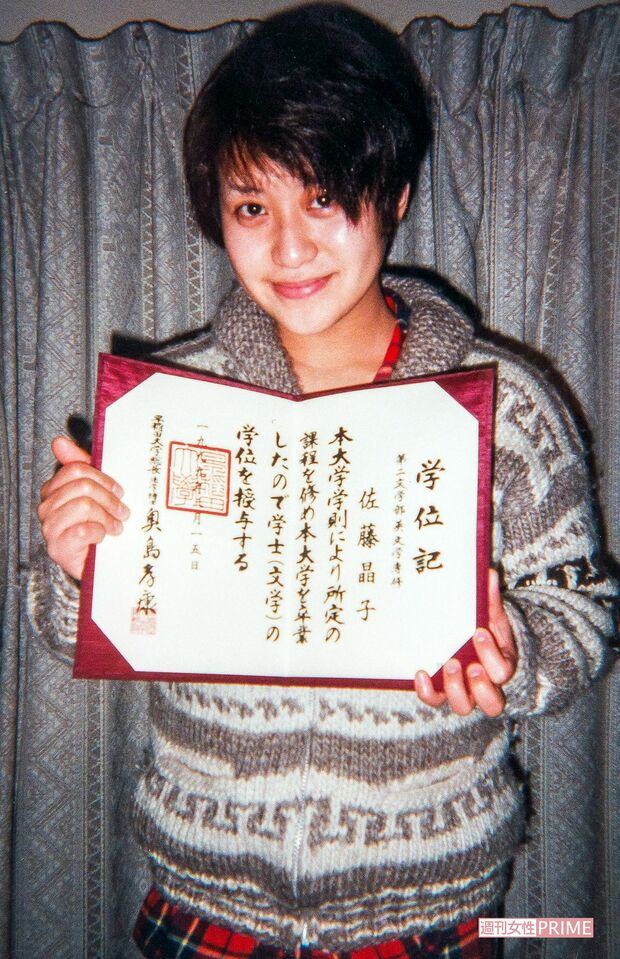 学位記
第二文学部英文学専修
佐藤晶子
本大学学則により所定の
課程を修め本大学を卒業
したので学士(文学)の
学位を授与する
月一五日
早稲田大学総長 奥島孝康
週刊女性PRIME